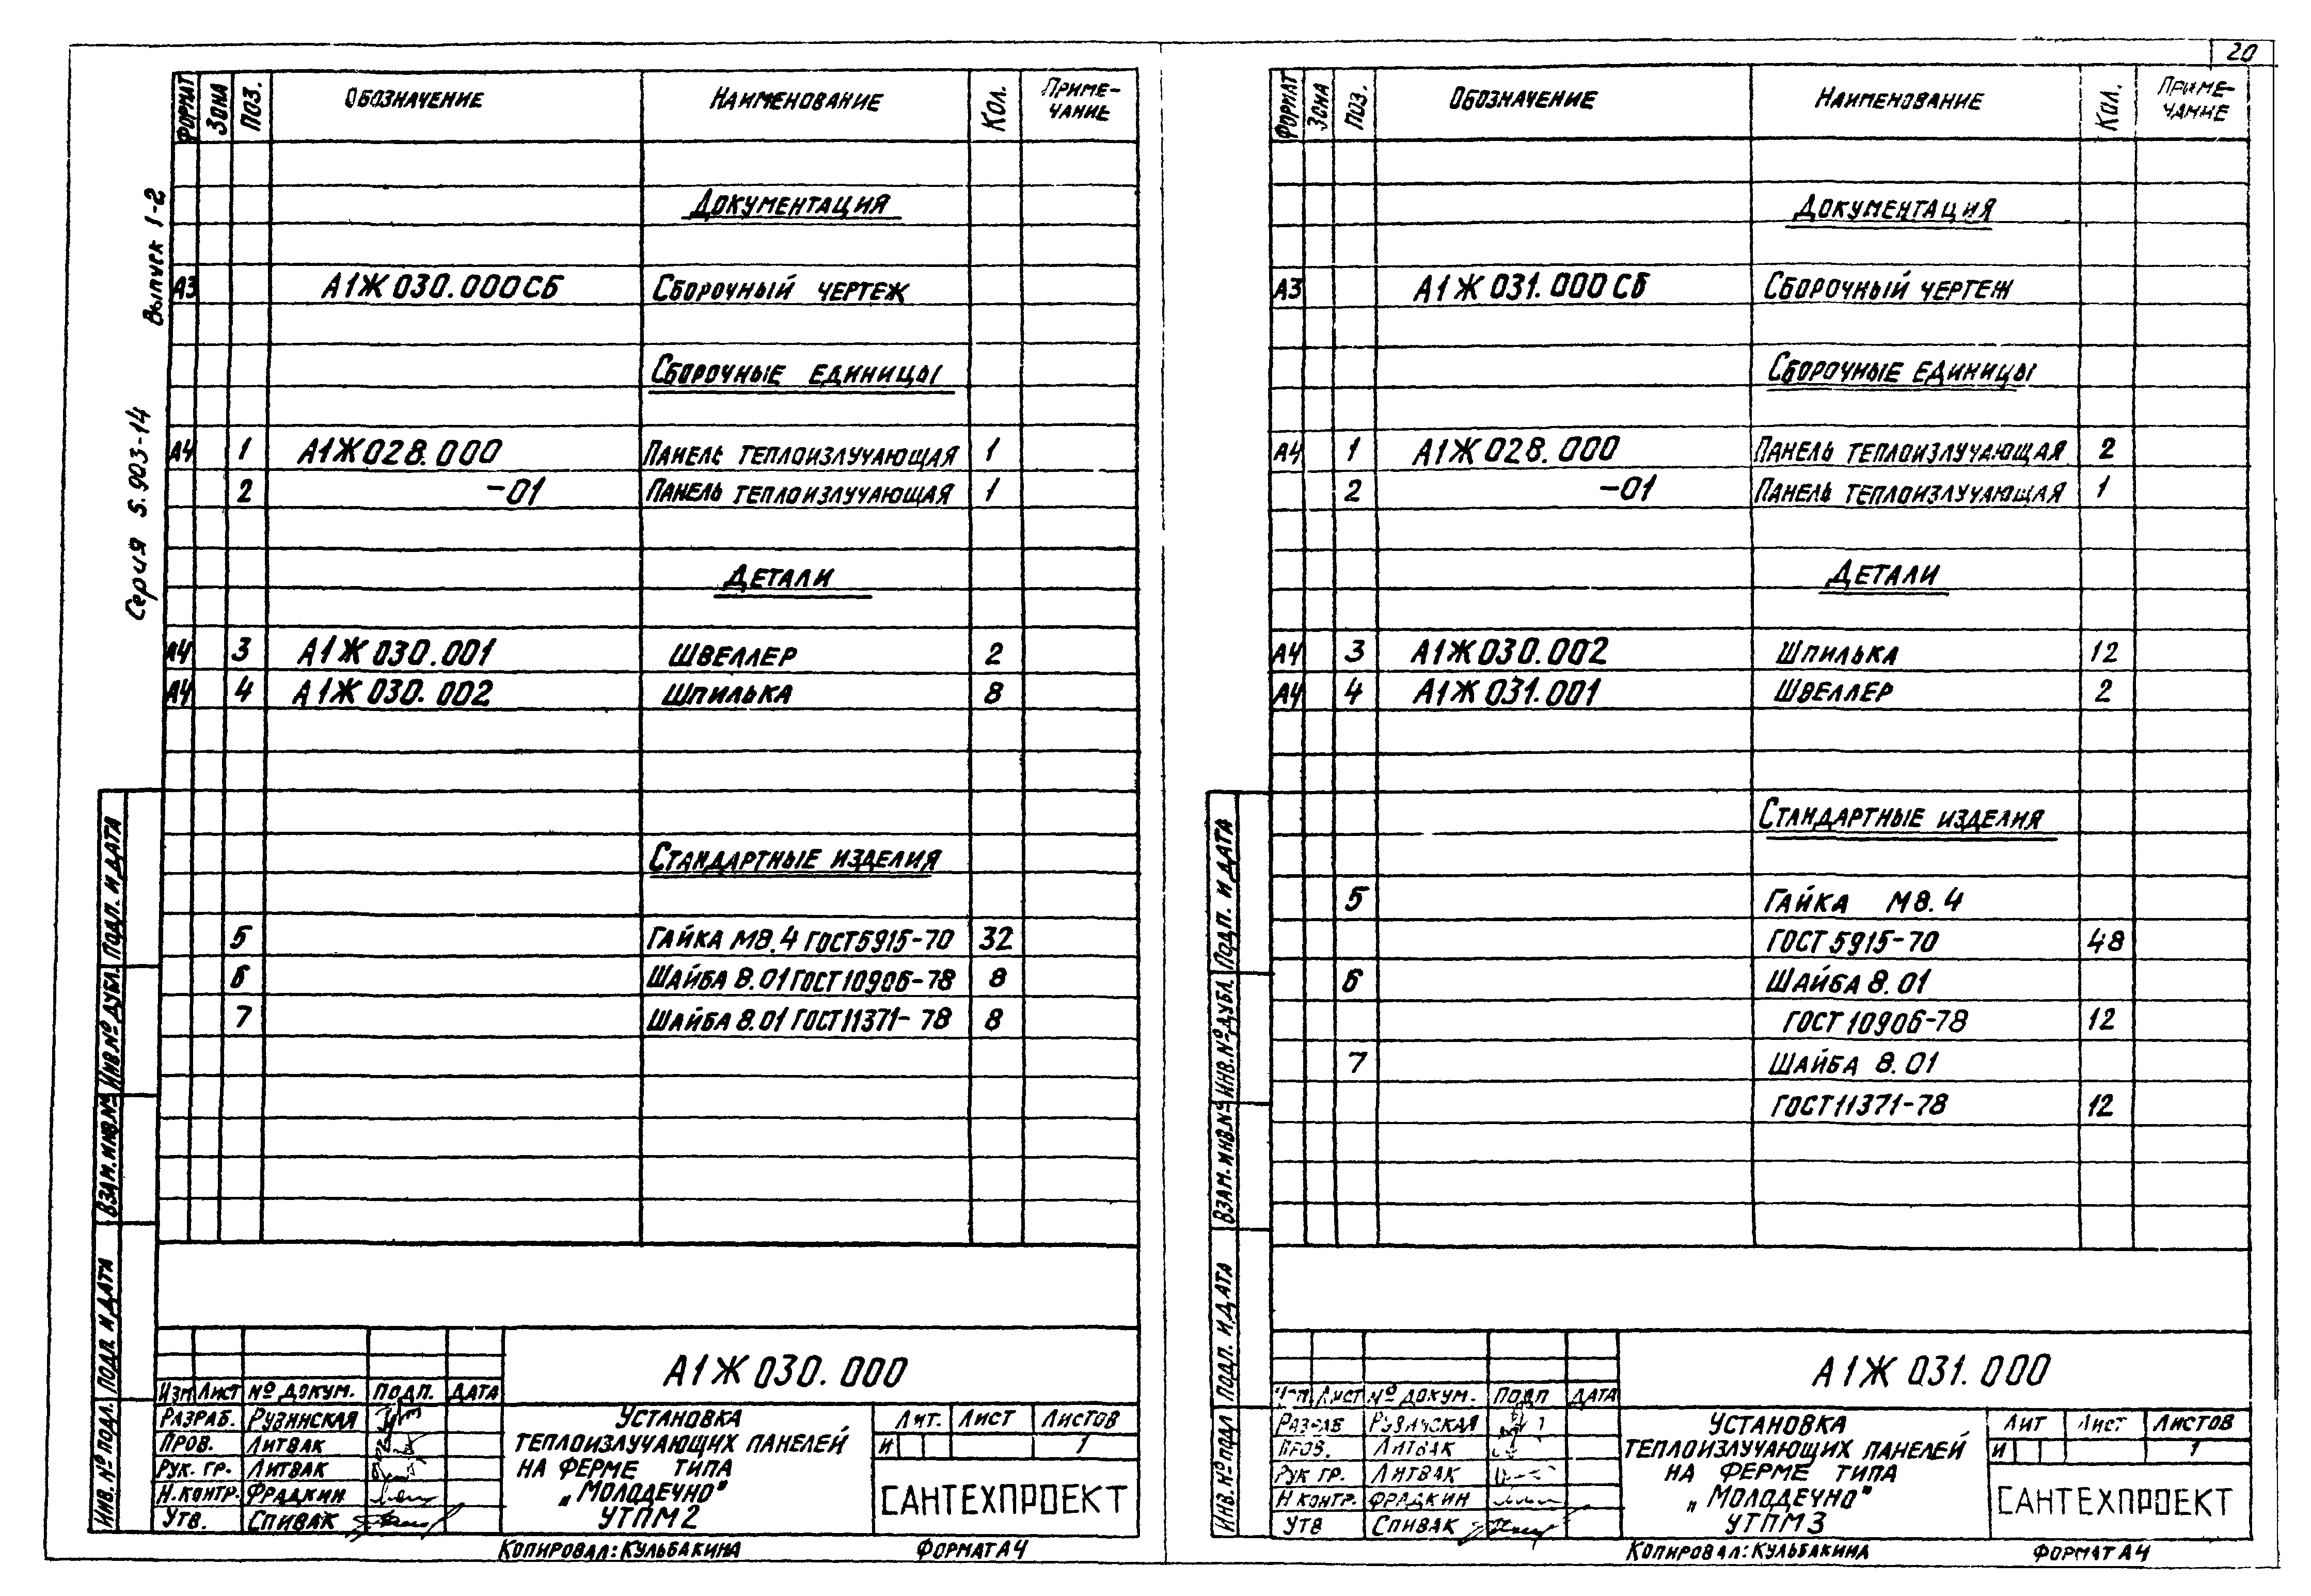 20
Серия 5.903-14 Выпуск 1-2
ФОРМАТ ЗОНА ПОЗ. ОБОЗНАЧЕНИЕ НАИМЕНОВАНИЕ КОЛ. ПРИМЕ-
ЧАНИЕ
ДОКУМЕНТАЦИЯ
А3 А1Ж030.000СБ СБОРОЧНЫЙ ЧЕРТЕЖ
СБОРОЧНЫЕ ЕДИНИЦЫ
А4 1 А1Ж028.000 ПАНЕЛЬ ТЕПЛОИЗЛУЧАЮЩАЯ 1
2 -01 ПАНЕЛЬ ТЕПЛОИЗЛУЧАЮЩАЯ 1
ДЕТАЛИ
А4 3 А1Ж030.001 ШВЕЛЛЕР 2
А4 4 А1Ж030.002 ШПИЛЬКА 8
СТАНДАРТНЫЕ ИЗДЕЛИЯ
5 ГАЙКА М8.4 ГОСТ5915-70 32
6 ШАЙБА 8.01 ГОСТ10906-78 8
7 ШАЙБА 8.01 ГОСТ11371-78 8
ИНВ.№ ПОДЛ. ПОДП. И ДАТА ВЗАМ.ИНВ.№ ИНВ.№ ДУБЛ. ПОДП. И ДАТА
А1Ж030.000
ИЗМ ЛИСТ № ДОКУМ. ПОДП. ДАТА
РАЗРАБ. РУЗИНСКАЯ
ПРОВ. ЛИТВАК
РУК. ГР. ЛИТВАК
Н.КОНТР. ФРАДКИН
УТВ. СПИВАК
УСТАНОВКА
ТЕПЛОИЗЛУЧАЮЩИХ ПАНЕЛЕЙ
НА ФЕРМЕ ТИПА
„МОЛОДЕЧНО"
УТПМ2
ЛИТ. ЛИСТ ЛИСТОВ
И 1
САНТЕХПРОЕКТ
КОПИРОВАЛ: КУЛЬБАКИНА ФОРМАТ А4
ФОРМАТ ЗОНА ПОЗ. ОБОЗНАЧЕНИЕ НАИМЕНОВАНИЕ КОЛ. ПРИМЕ-
ЧАНИЕ
ДОКУМЕНТАЦИЯ
А3 А1Ж031.000СБ СБОРОЧНЫЙ ЧЕРТЕЖ
СБОРОЧНЫЕ ЕДИНИЦЫ
А4 1 А1Ж028.000 ПАНЕЛЬ ТЕПЛОИЗЛУЧАЮЩАЯ 2
2 -01 ПАНЕЛЬ ТЕПЛОИЗЛУЧАЮЩАЯ 1
ДЕТАЛИ
А4 3 А1Ж030.002 ШПИЛЬКА 12
А4 4 А1Ж031.001 ШВЕЛЛЕР 2
СТАНДАРТНЫЕ ИЗДЕЛИЯ
5 ГАЙКА М8.4
ГОСТ5915-70 48
6 ШАЙБА 8.01
ГОСТ 10906-78 12
7 ШАЙБА 8.01
ГОСТ11371-78 12
ИНВ.№ ПОДЛ ПОДП. И ДАТА ВЗАМ.ИНВ.№ ИНВ.№ ДУБЛ. ПОДП. И ДАТА
А1Ж031.000
ИЗМ ЛИСТ № ДОКУМ. ПОДП ДАТА
РАЗРАБ РУЗИНСКАЯ
ПРОВ. ЛИТВАК
РУК ГР. ЛИТВАК
Н КОНТР. ФРАДКИН
УТВ СПИВАК
УСТАНОВКА
ТЕПЛОИЗЛУЧАЮЩИХ ПАНЕЛЕЙ
НА ФЕРМЕ ТИПА
„МОЛОДЕЧНО"
УТПМ3
ЛИТ ЛИСТ ЛИСТОВ
И 1
САНТЕХПРОЕКТ
КОПИРОВАЛ: КУЛЬБАКИНА ФОРМАТ А4